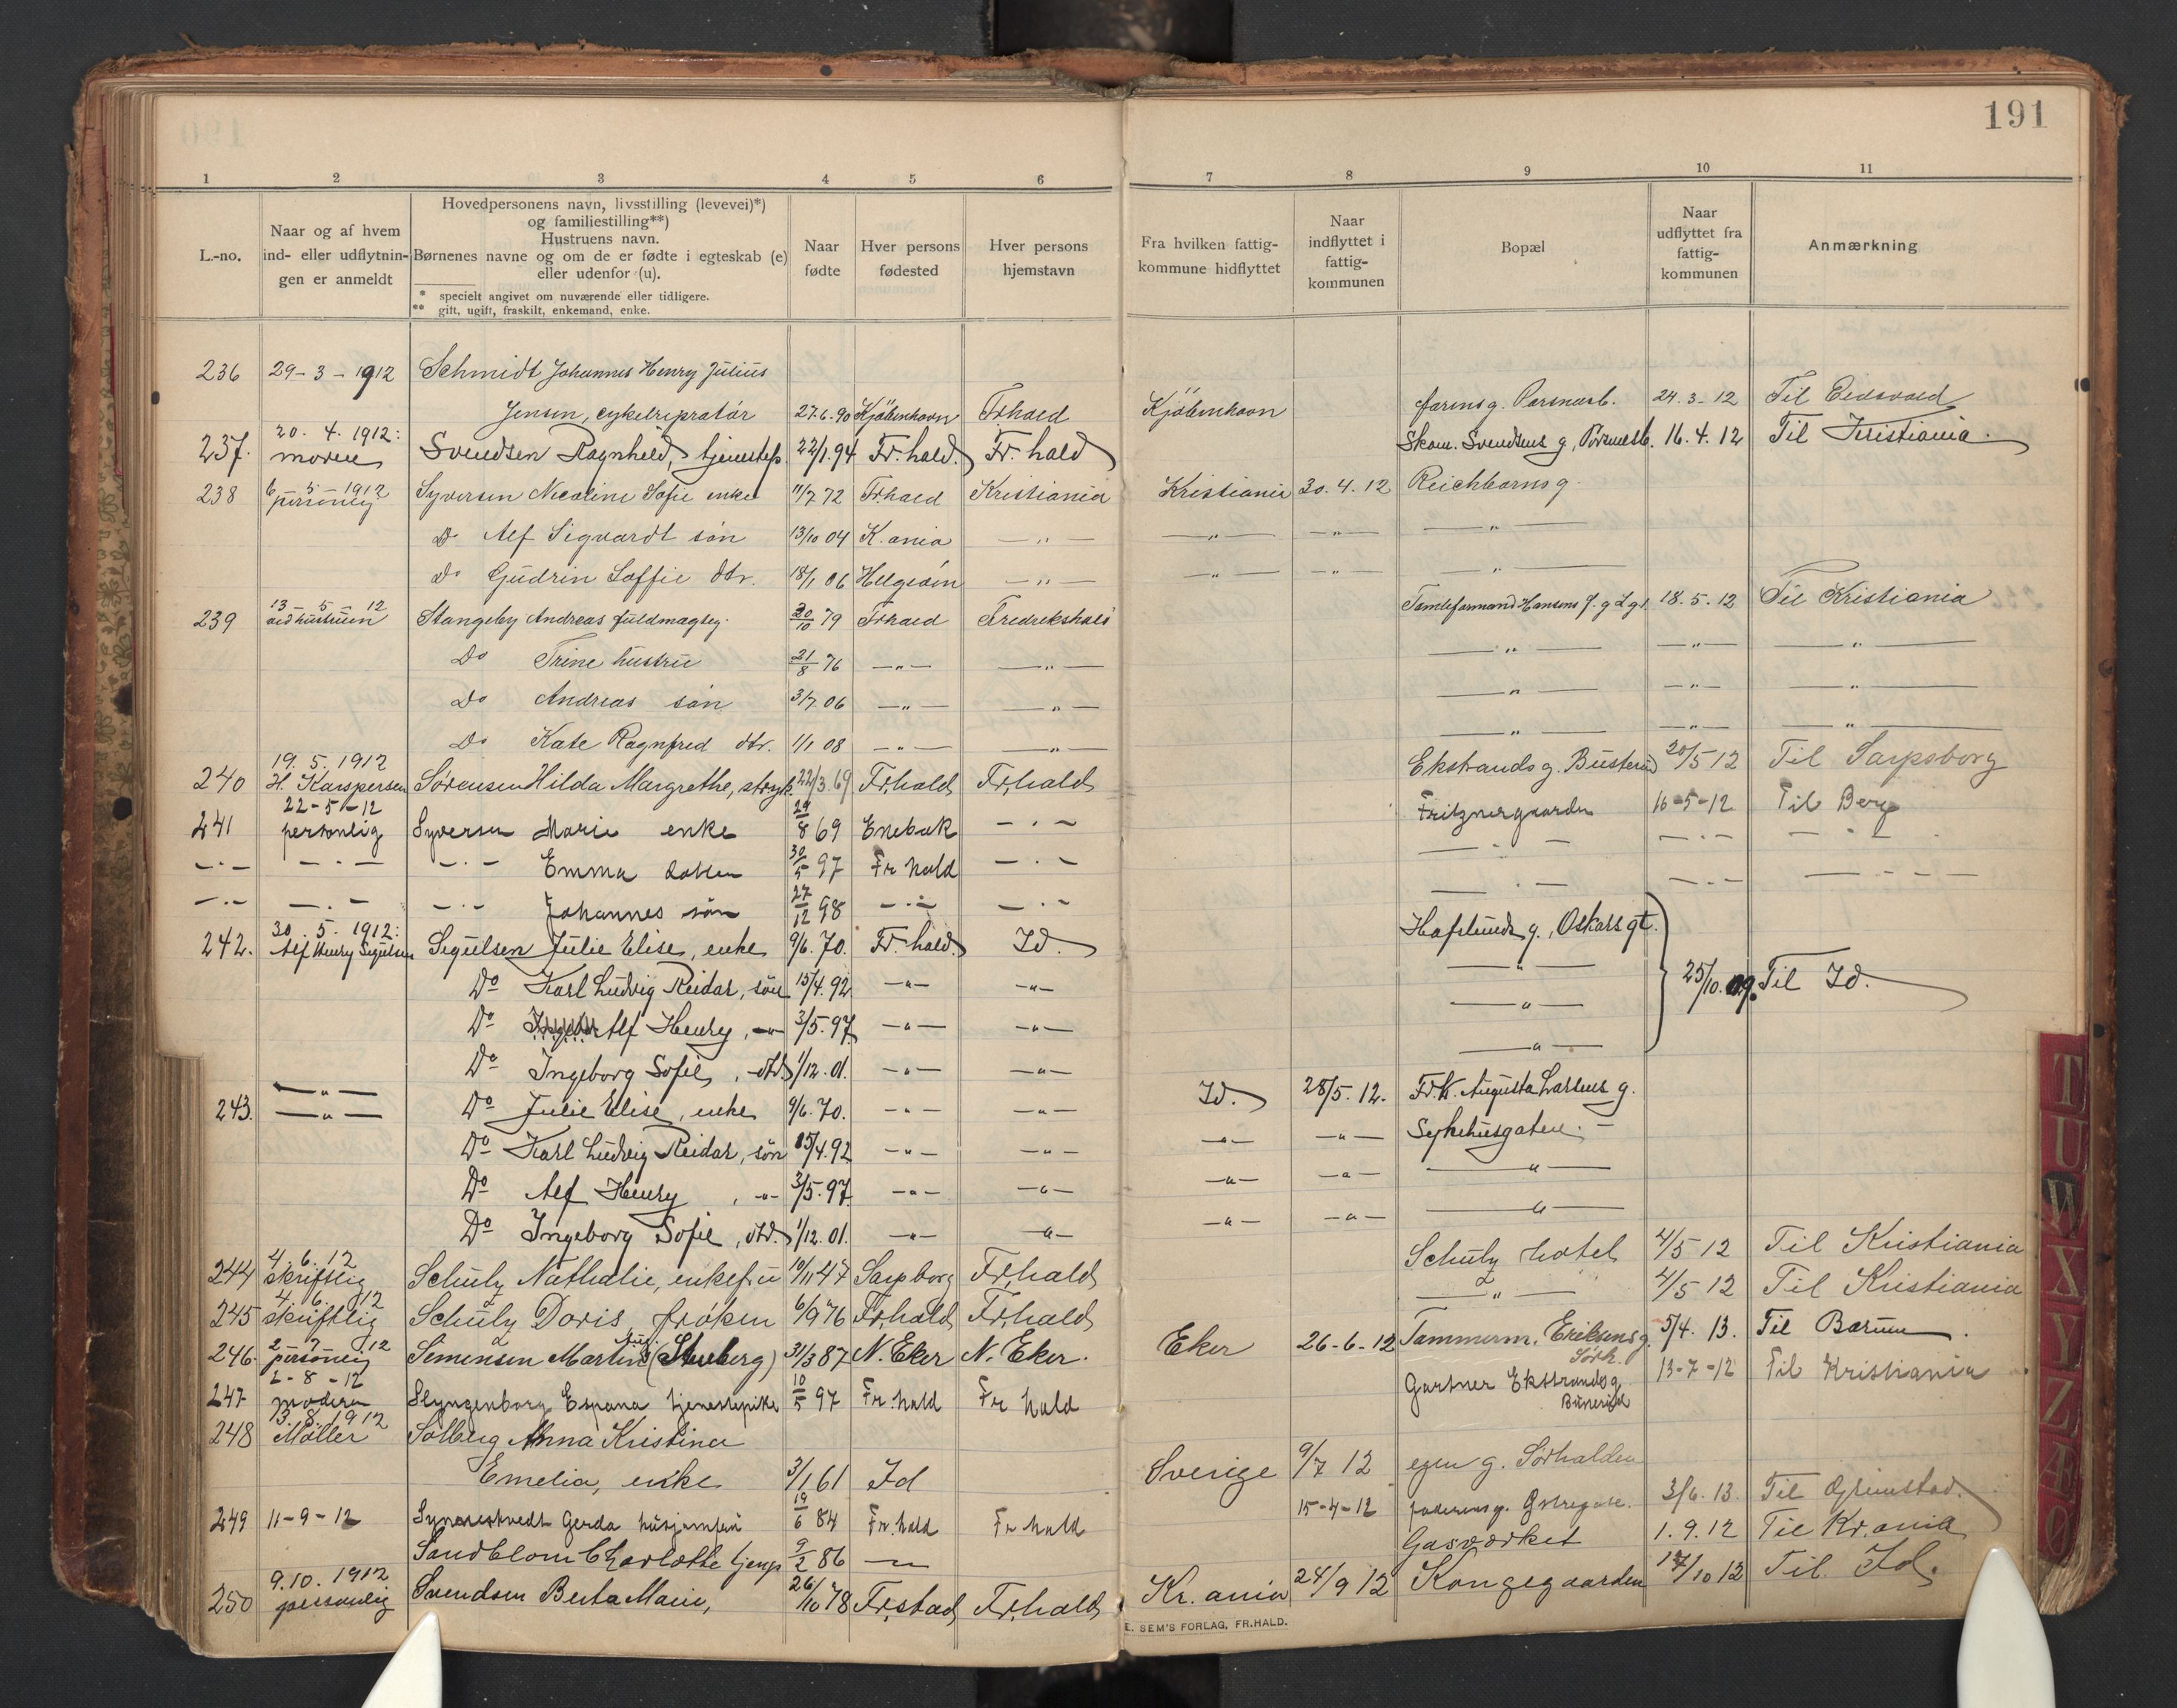 191
1 2 3 4 5 6 7 8 9 10 11
L.-no.
Naar og af hvem ind- eller udflytnin- gen er anmeldt
Hovedpersonens navn, livsstilling (levevei)*)
og familiestilling**)
Hustruens navn.
Børnenes navne og om de er fødte i egteskab (e)
eller udenfor (u).
* specielt angivet om nuværende eller tidligere.
** gift, ugift, fraskilt, enkemand, enke.
Naar fødte
Hver persons fødested
Hver persons hjemstavn
Fra hvilken fattig- kommune hidflyttet
Naar indflyttet i fattig- kommunen
Bopæl
Naar udflyttet fra fattig- kommunen
Anmærkning
236 29-3-1912 Schmidt Johannes Henry Julius
Jensen, cykelrepratør 27.6.90 Kjøbenhavn Frhald Kjøbenhavn 24.3-12 Til Eidsvold
20.4.1912:
237. moren Svendsen Ragnhild, tjenestep. 22/1.94 Fr.hald. Fr.hald Skom. Svendsens g, 16.4.12 Til Kristiania.
6-5-1912
238 personlig Syversen Nicoline Sofie enke 11/7 72 Frhald Kristiania Kristiania 30.4.12 Reichborns g.
Do Alf Sigvardt søn 13/10 04 K.ania —„— —„— —„— —„—
Do Gudrun Soffie dtr. 18/1 06 —„— —„— —„— —„—
13-5-12
239 ved hustruen Stangeby Andreas fuldmægtig. 20/10 79 Frhald Fredrikshald Hansens 18.5.12 Til Kristiania
Do Trine hustru 21/8 76 —„— —„— —„— —„— —„—
Do Andreas søn 3/7.06 —„— —„— —„— —„— —„—
Do Kate Ragnfred dtr. 1/1 08 —„— —„— —„— —„— —„—
19.5.1912
240 H. Karspersen Sørensen Hilda Margrethe, stryk. 22/3.69 Fr.hald Fr.hald Ekstrands g. Busterud 20/5 12 Til Sarpsborg
22-5-12
241 personlig Syversen Marie enke 29/8 69 Enebak —„— Fritznergaarden 16-5-12 Til Berg
—„— —„— —„— Emma datter 30/5 97 Fr hald —„— —„— —„— —„—
—„— —„— —„— Johannes søn 27/12 98 —„— —„— —„— —„— —„—
30.5.1912:
242. Alf Henry Sigulsen Sigulsen Julie Elise, enke 9/6.70. Fr.hald. Id. Hafslunds g., Oskars gt.
Do Karl Ludvig Reidar, søn 15/4.92 —„— —„— —„— 25/10.09. Til Id.
Do Alf Henry, —„— 3/5.97 —„— —„— —„—
Do Ingeborg Sofie, dtr. 1/12.01. —„— —„— —„—
243. —„— Do Julie Elise, enke 9/6.70. —„— —„— Id. 28/5.12. Frk. Augusta Larsens g.
Do Karl Ludvig Reidar, søn 15/4.92 —„— —„— —„— —„— Sykehusgaten.
Do Alf Henry, —„— 3/5.97 —„— —„— —„— —„— —„—
Do Ingeborg Sofie, dtr. 1/12.01. —„— —„— —„— —„— —„—
4.6.12
244 skriftlig Schulz Nathalie, enkefru 10/11 47 Sarpborg Fr.hald Schulz hotel 4/5 12 Til Kristiania
4.6.12
245 skriftlig Schulz Doris, frøken 6/9 76 Fr.hald Fr.hald —„— 4/5 12 Til Kristiania
2-7-12
246. personlig Simensen Martin (Stuberg) 31/3 87 N. Eker N. Eker. Eker 26-6-12 Tømmerm. Eriksens g. Sørh. 5/4.13. Til Bærum.
2-8-12
247 moderen Slyngenborg Espana tjenestepike 10/5 97 Fr.hald Fr hald Gartner Ekstrands g. 13-7-12 Til Kristiania
13.8.1912
248 Møller Solberg Anna Kristina
Emelia, enke 3/1 61 Id Sverige 9/7 12 egen g. Sørhalden
249 11-9-12 Gerda husjomfru 19/6 84 Fr.hald Fr hald 15-4-12 faderens g. 3/6.13. Til Grimstad.
Sandblom Charlotte tjenp 9/2 86 —„— Gasværket 1.9.12 Til Kr.ania
9.10.1912
250 personlig Svendsen Berta Marie, 26/10 78 Fr.stad Fr.hald Kr.ania 24/9 12 Kongegaarden 17/10 12 Til Id.
E. SEM'S FORLAG, FR.HALD.
T U W X Y Z Æ Ø